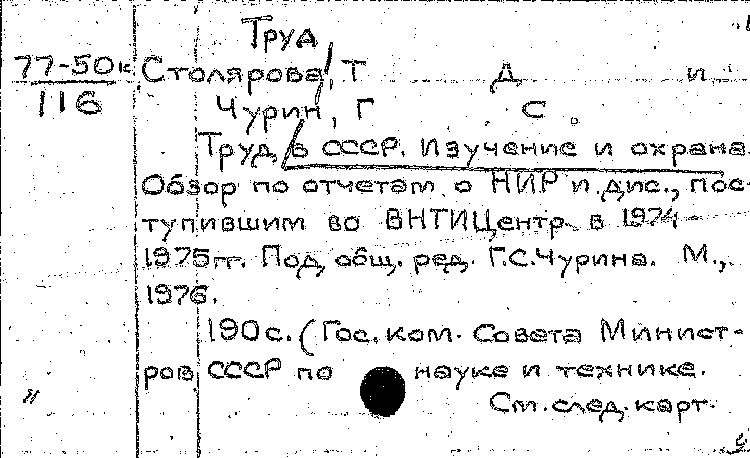 Труд
77-50к Столярова, Т Д и
116 Чурин, Г С.
Труд в СССР. Изучение и охрана.
Обзор по отчетам о НИР и дис., пос-
тупившим во ВНТИЦентр в 1974-
1975гг. Под общ. ред. Г.С.Чурина. М.,
1976.
190с. (Гос. ком. Совета Минист-
ров СССР по науке и технике.
См. след. карт.